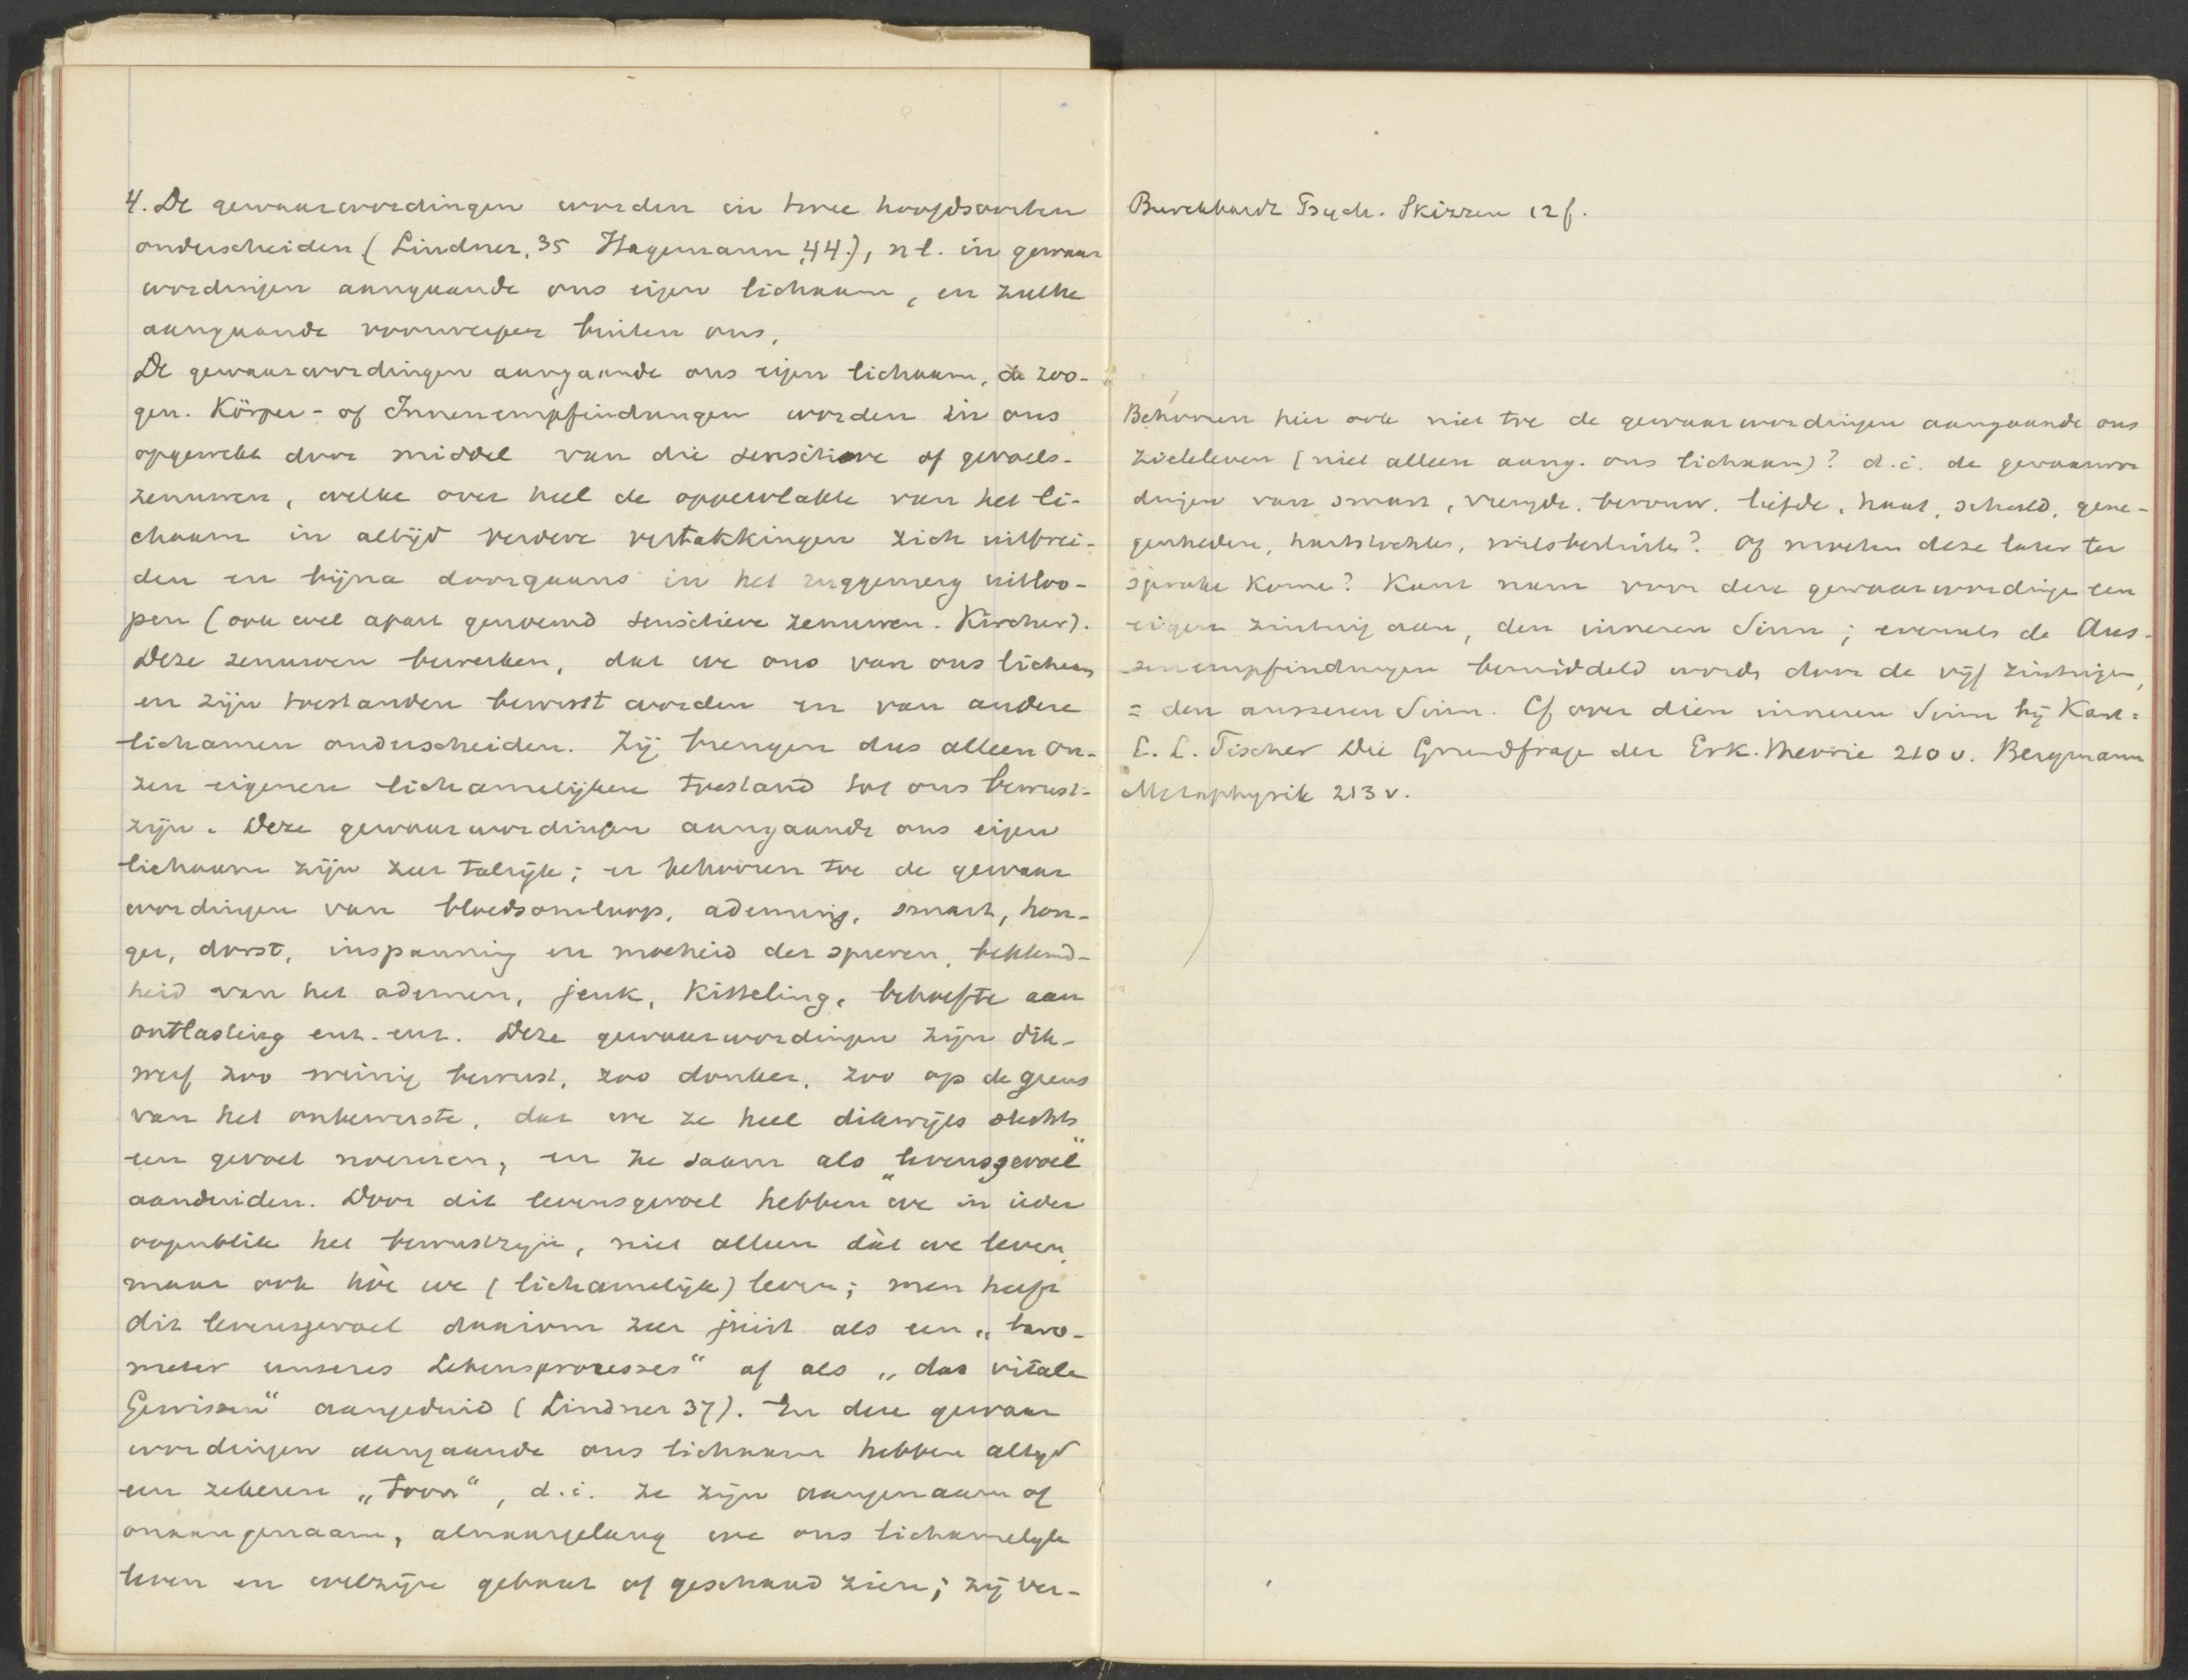 4. De gewaarwordingen worden in twee hoofdsoorten
onderscheiden (Lindner, 35 Hagemann, 44.), nl. in gewaar
wordingen aangaande ons eigen lichaam, en zulke
aangaande voorwerpen buiten ons.
De gewaarwordingen aangaande ons eigen lichaam, de zoo-
gen. Körper- of Innenempfindungen worden in ons
opgewekt door middel van die sensitieve of gevoels-
zenuwen, welke over heel de oppervlakte van het li-
chaam in altijd verdere vertakkingen zich uitbrei-
den en bijna doorgaans in het ruggemerg uitloo-
pen (ook wel apart genoemd sensitieve zenuwen. Kircher).
Deze zenuwen bewerken, dat we ons van ons lichaam
en zijn toestanden bewust worden en van andere
lichamen onderscheiden. Zij brengen dus alleen on-
zen eigenen lichamelijken toestand tot ons bewust-
zijn. Deze gewaarwordingen aangaande ons eigen
lichaam zijn zeer talrijk; er behooren toe de gewaar
wordingen van bloedsomloop, ademing, smart, hon-
ger, dorst, inspanning en moeheid der spieren, beklemd-
heid van het ademen, jeuk, kitteling, behoefte aan
ontlasting enz. enz. Deze gewaarwordingen zijn dik-
werf zoo weinig bewust, zoo donker, zoo op de grens
van het onbewuste, dat we ze heel dikwijls slechts
een gevoel noemen, en ze saam als „levensgevoel"
aanduiden. Door dit levensgevoel hebben we in ieder
oogenblik het bewustzijn, niet alleen dàt we leven,
maar ook hòe we (lichamelijk) leven; men heeft
dit levensgevoel daarom zeer juist als een „baro-
meter unseres Lebensprocesses" of als „das vitale
Gewissen" aangeduid (Lindner 37). En deze gewaar
wordingen aangaande ons lichaam hebben altijd
een zekeren „toon", d.i. ze zijn aangenaam of
onaangenaam, alnaargelang we ons lichamelijk
leven en welzijn gebaat of geschaad zien; zij ver-
Burckhardt Psych. Skizzen 12 f.
Behooren hier ook niet toe de gewaarwordingen aangaande ons
zieleleven (niet alleen aang. ons lichaam)? d.i. de gewaarwor
dingen van smart, vreugde, berouw, liefde, haat, schuld, gene-
genheden, hartstochten, wilsbesluiten? Of moeten deze later ter
sprake komen? Kant nam voor deze gewaarwordingen een
eigen zintuig aan, den inneren Sinn; evenals de Aus-
senempfindungen bemiddeld wordt door de vijf zintuigen,
= den äusseren Sinn. Cf over dien inneren Sinn bij Kant:
E. L. Fischer Die Grundfrage der Erk.theorie 210 v. Bergmann
Metaphysik 213 v.